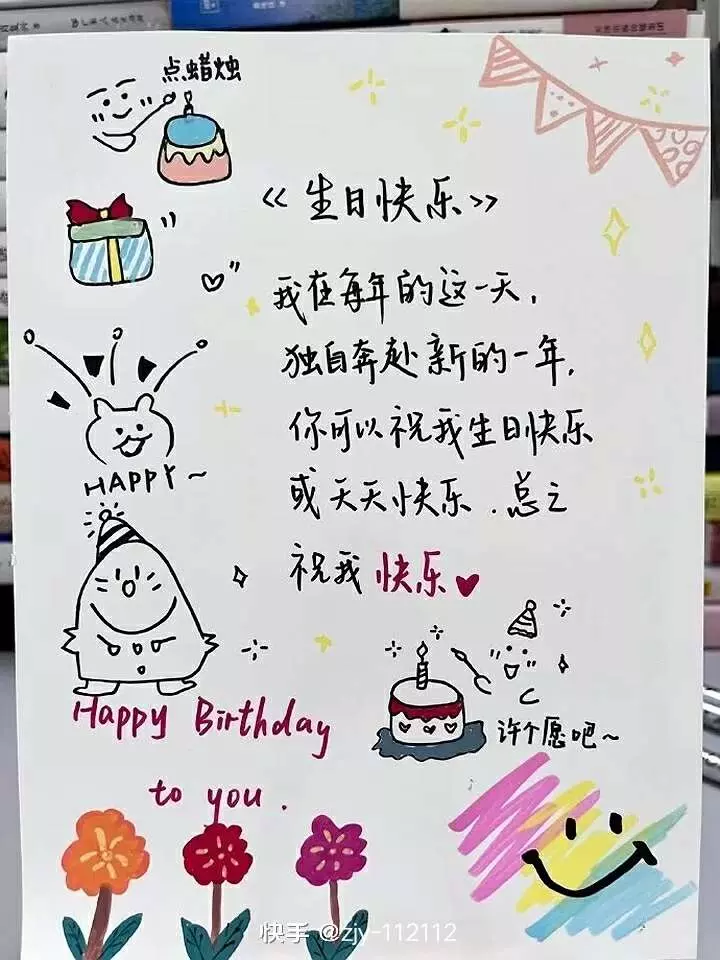 点蜡烛
《生日快乐》
我在每年的这一天，
独自奔赴新的一年，
你可以祝我生日快乐
或天天快乐．总之
祝我快乐
HAPPY～
Happy Birthday
to you .
许个愿吧～
快手 @zjy-112112